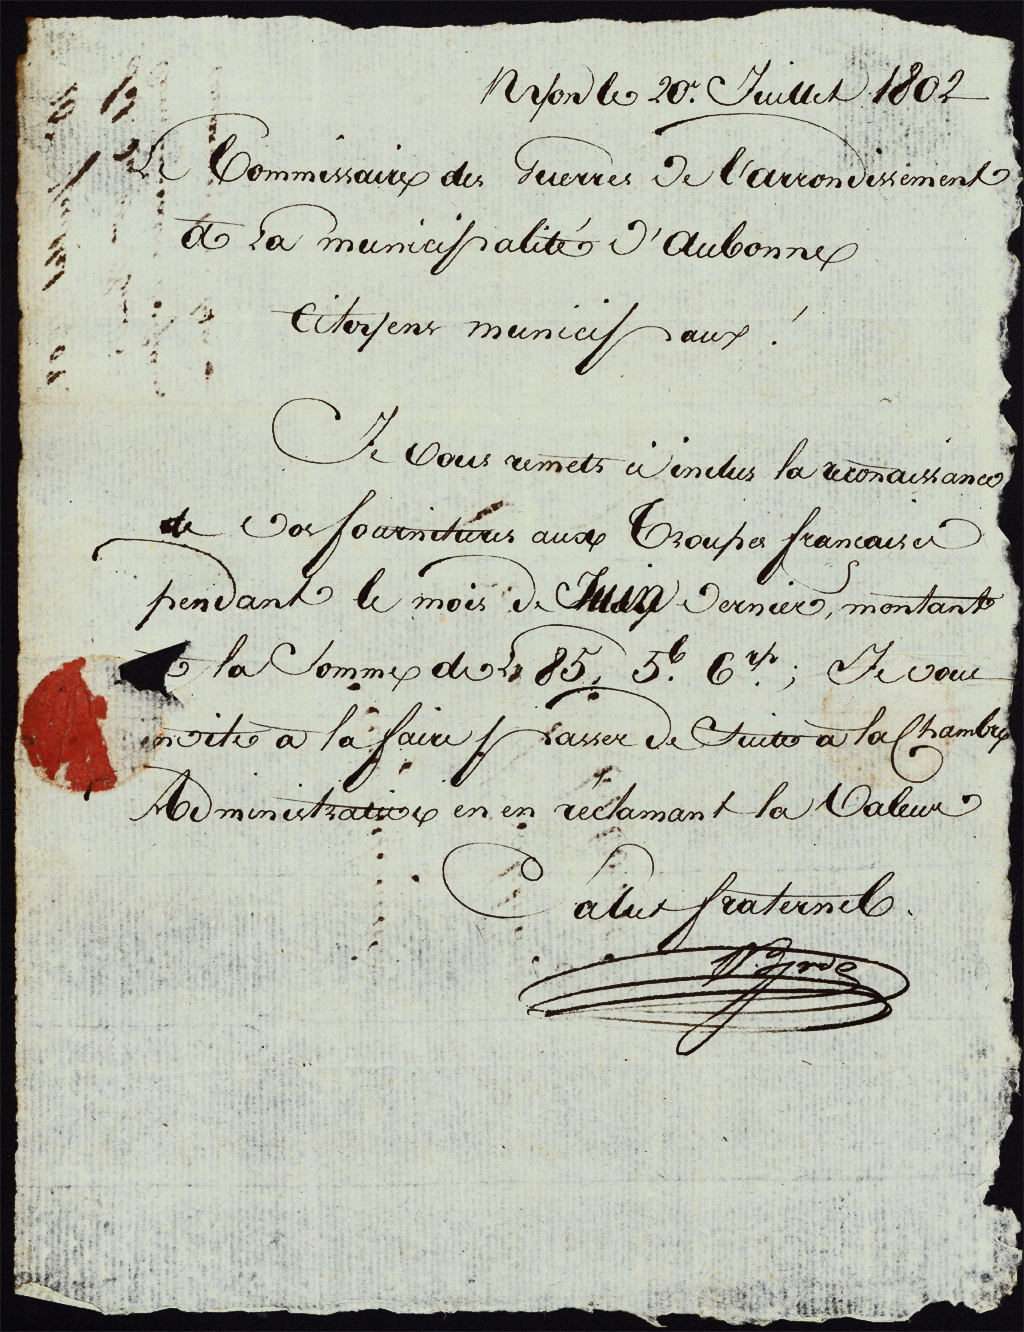 Nyon le 20e. Juillet 1802
Le Commissaire des Guerres de l'arrondissement
a la municipalité d'Aubonne
Citoyens municipaux !
Je vous remets ci inclus la reconaissance
de vos fournitures aux Troupes françaises
pendant le mois de Juin dernier, montant
à la Somme de L 85. 5b. 6rp.; Je vous
invite a la faire passer de Suite a la Chambre
Administrative en en réclamant la Valeur
Salut fraternel.